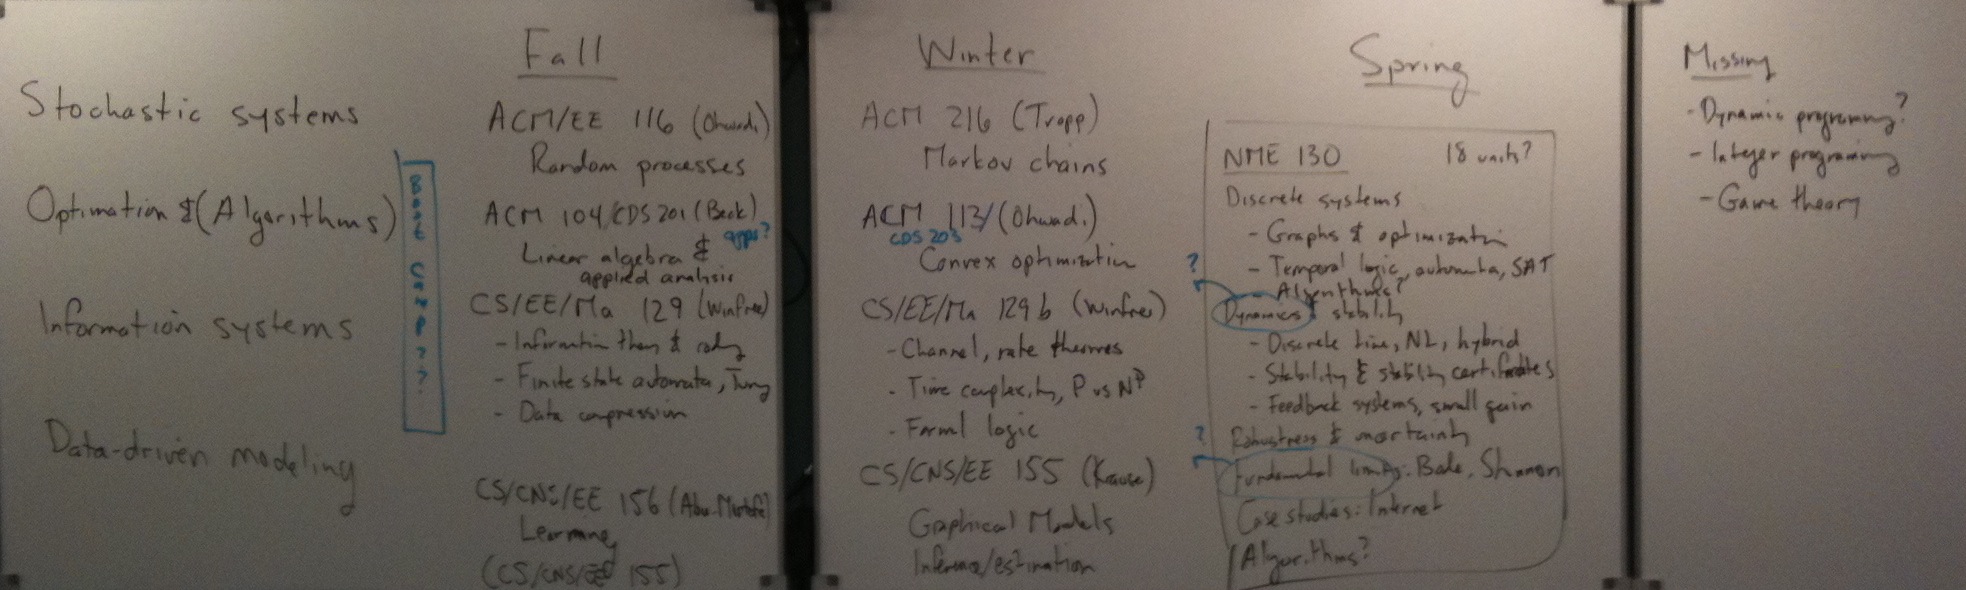 Stochastic systems
Optimation & (Algorithms)
Information systems
Data-driven modeling
Boot Camp??
Fall
ACM/EE 116 (Owhadi)
Random processes
ACM 104/CDS 201 (Beck)
apps?
Linear algebra &
applied analysis
CS/EE/Ma 129 (Winfree)
- Information theory & coding
- Finite state automata, Turing
- Data compression
CS/CNS/EE 156 (Abu-Mostafa)
Learning
(CS/CNS/EE 155)
Winter
ACM 216 (Tropp)
Markov chains
ACM 113/ (Owhadi)
CDS 203
Convex optimization
CS/EE/Ma 129b (Winfree)
- Channel, rate theorems
- Time complexity, P vs NP
- Formal logic
CS/CNS/EE 155 (Krause)
Graphical Models
Inference/estimation
Spring
NME 130 18 units?
Discrete systems
- Graphs & optimization
- Temporal logic, automata, SAT
- Algorithms?
? Dynamics & stability
- Discrete time, NL, hybrid
- Stability & stability certificates
- Feedback systems, small gain
? Robustness & uncertainty
Fundamental limits: Bode, Shannon
Case studies: Internet
Algorithms?
Missing
- Dynamic programming?
- Integer programming
- Game theory